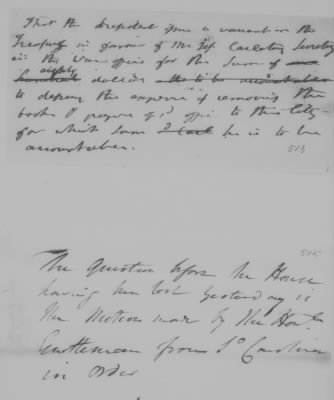 That the president issue a warrant on the
Treasury in favour of Mr. Jos. Carleton Secretary
in the War office for the Sum of one
eighty
hundred dollars also to be accountable
to defray the expence of removing the
books & papers of sd. office to this City
for which Sum he is to be
accountable.
513
515
The Question before the House
having been lost yesterday is
the Motion made by the Honble
Gentleman from So Carolina
in order